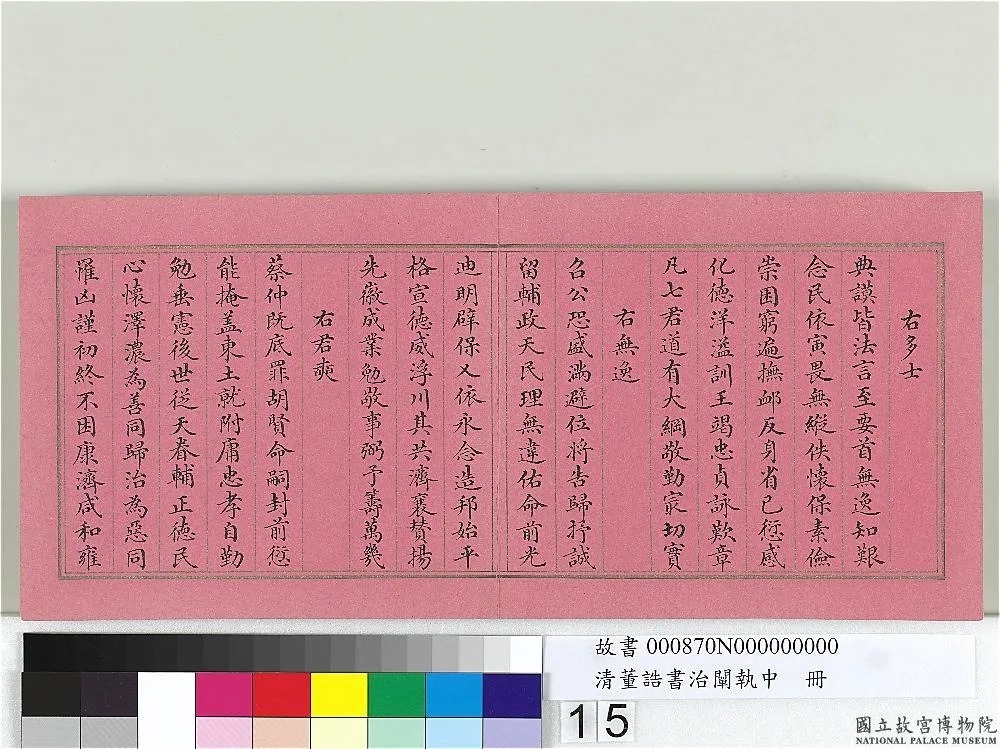 右多士
典謨皆法言至要首無逸知艱
念民依寅畏無縱佚懷保素儉
崇困窮遍撫卹反身省己愆感
化德洋溢訓王竭忠貞詠歎章
凡七君道有大綱敬勤寔切實
右無逸
召公恐盛滿避位將告歸抒誠
留輔政天民理無違佑命前光
迪明辟保乂依永念造邦始平
格宣德威浮川其共濟襄贊揚
先徽成業勉敬事弼予籌萬幾
右君奭
蔡仲既底罪胡賢命嗣封前愆
能掩盖東土就附庸忠孝自勤
勉垂憲後世從天眷輔正德民
心懷澤濃為善同歸治為惡同
罹凶謹初終不困康濟咸和雍
故書 000870N000000000
清董誥書治闡執中 冊
15
國立故宮博物院
NATIONAL PALACE MUSEUM